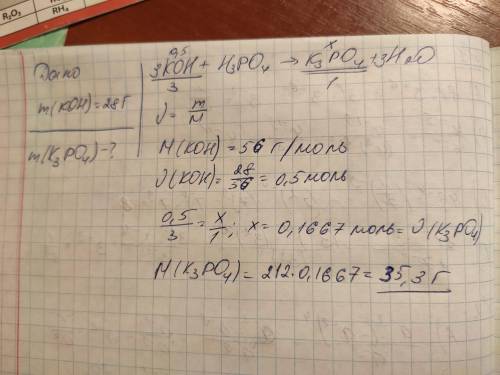 R₂O₃ RH₄
Дано
m(KOH)=28г
m(K₃PO₄)-?
0,5 x
3KOH + H₃PO₄ → K₃PO₄+3H₂O
3 1
ν = m/M
M(KOH) = 56 г/моль
ν(KOH)= 28/56 = 0,5 моль
0,5/3 = x/1; x = 0,1667 моль = ν(K₃PO₄)
M(K₃PO₄)= 212·0,1667= 35,3 г